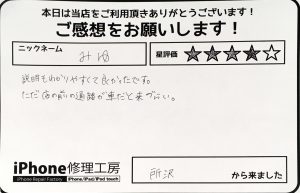 本日は当店をご利用頂きありがとうございます!
ご感想をお願いします!
ニックネーム
星評価 ★★★★☆
説明もわかりやすくて良かったです。
ただ店の前の通路が車だと来づらい。
iPhone修理工房
iPhone Repair Factory iPhone/iPad/iPod touch
所沢 から来ました